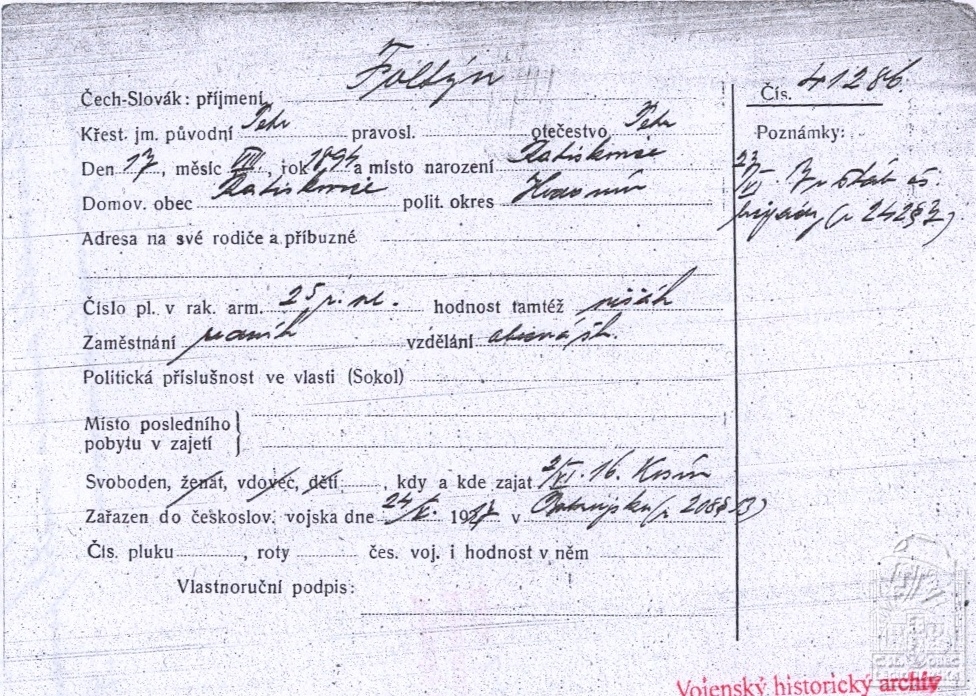 Čech-Slovák: příjmení Foltýn
Čís. 41286.
Křest. jm. původní Petr pravosl. otečestvo Petr
Poznámky:
Den 17, měsíc VIII, rok 1894 a místo narození Ratiškovice
Domov. obec Ratiškovice polit. okres Hodonín
23/VI. štáb čs.
brigády (r 242§7)
Adresa na své rodiče a příbuzné
Číslo pl. v rak. arm. 25 p. pl. hodnost tamtéž pěšák
Zaměstnání vzdělání obecná šk.
Politická příslušnost ve vlasti (Sokol)
Místo posledního
pobytu v zajetí
Svoboden, ženat, vdovec, dětí, kdy a kde zajat 2/VI. 16.
Zařazen do českoslov. vojska dne 24/X. 1917 v (r 208§13)
Čís. pluku , roty čes. voj. i hodnost v něm
Vlastnoruční podpis:
Vojenský historický archiv